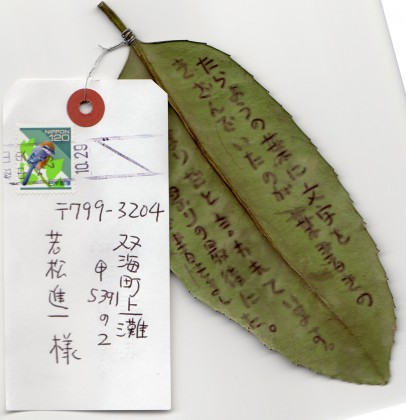 NIPPON
120
10.29
〒799-3204
双海町上灘
甲5391の2
若松進一 様
たらようの葉に文字を
きざんでいたのが葉書きの
まりだと言われています。
りの最後に
した。